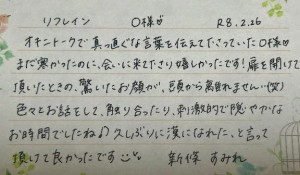 リフレイン 〇様♡ R8.2.26
オキニトークで真っ直ぐな言葉を伝えて下さっていた〇様♡
まだ寒かったのに、会いに来て下さり嬉しかったです！扉を開けて
頂いたとき、驚いたお顔が、頭から離れません…(笑)
色々とお話をして、触り合ったり、刺激的で穏やかな
お時間でしたね♪ 久しぶりに漢になれた、と言って
頂けて良かったです 新條 すみれ